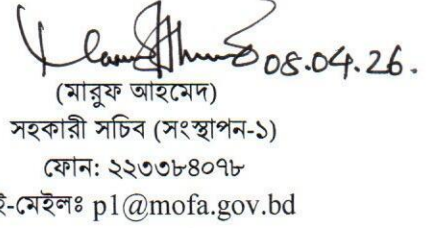 08.04.26.
(মারুফ আহমেদ)
সহকারী সচিব (সংস্থাপন-১)
ফোন: ২২৩৩৮৪০৭৮
ই-মেইলঃ p1@mofa.gov.bd